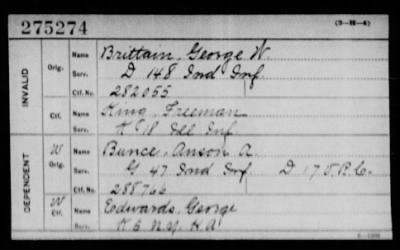 275274 (3-H-4)
INVALID
Orig. Name Brittain, George W.
Serv. D 148 Ind Inf.
Ctf. No. 282055
Ctf. Name King, Freeman
Serv. K 18 Ill Inf.
DEPENDENT
W Orig. Name Bunce, Anson A.
Serv. G 47 Ind Inf. D 17 V.R.C.
Ctf. No. 288766
W Ctf. Name Edwards, George
Serv. K 6 N.Y. H.A.